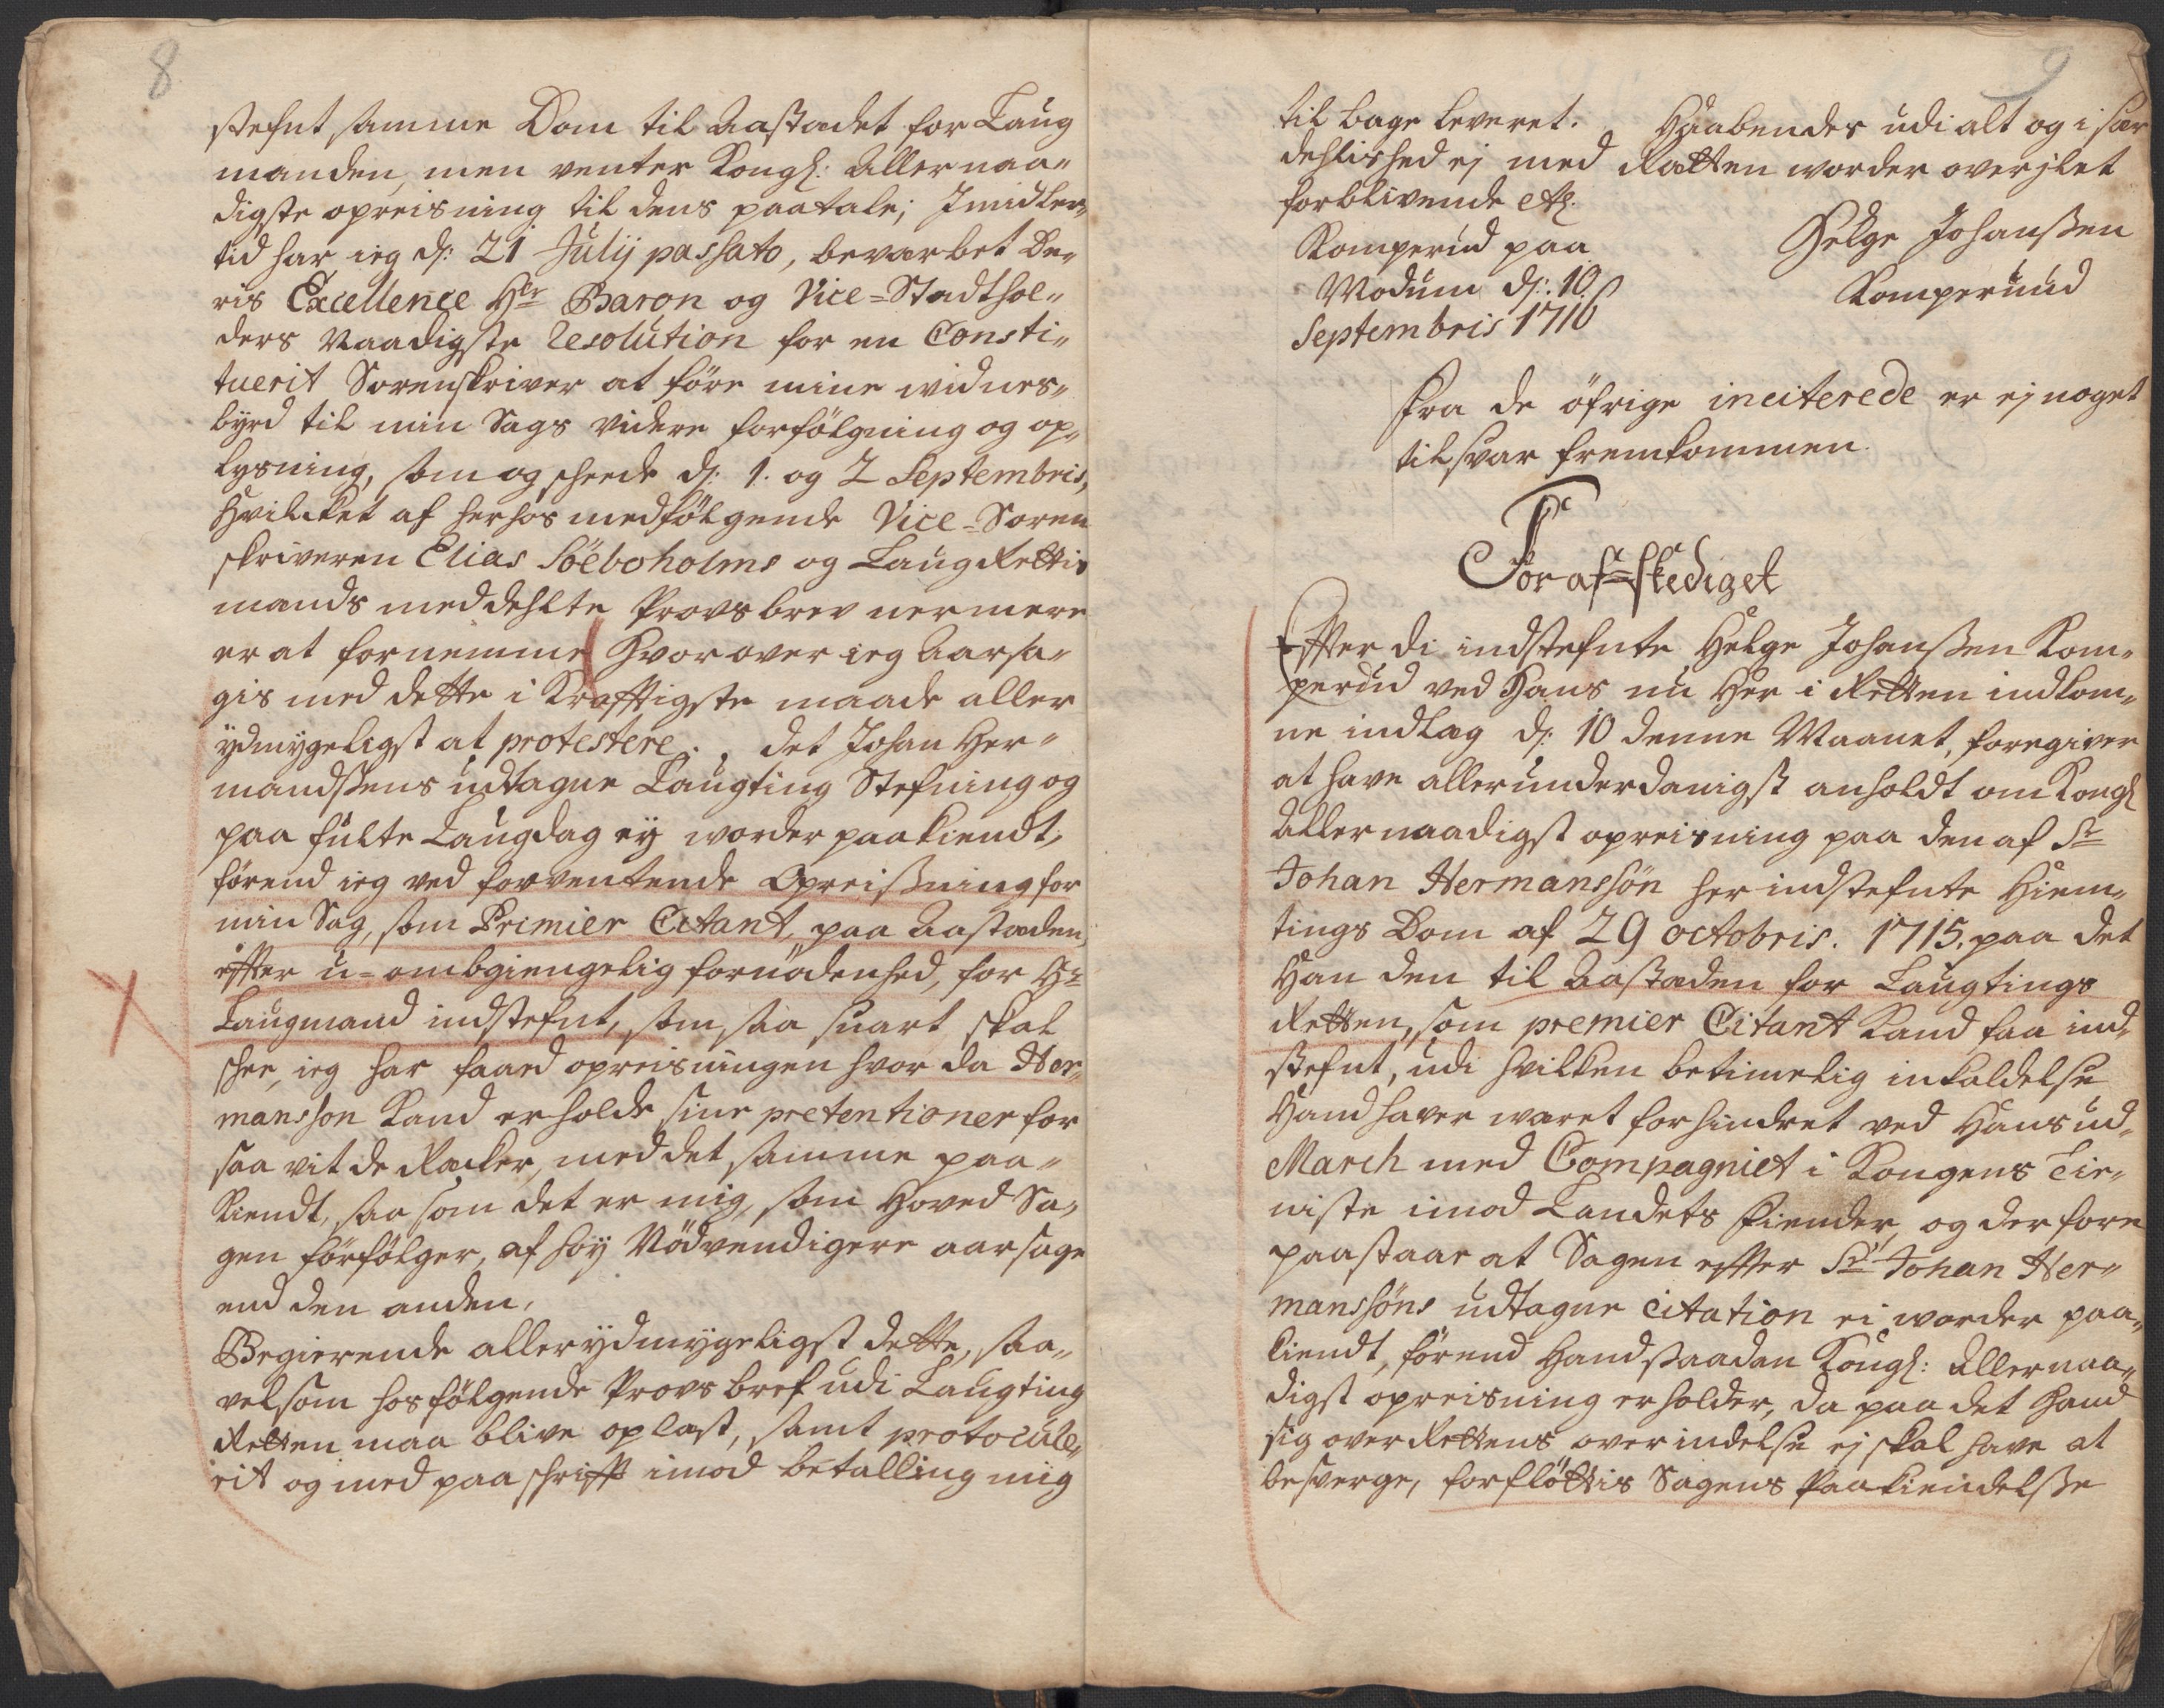 8
stefnt samme Dom til Aastædet for Laug
manden, men venter Kongl: Allernaa„
digste opreisning til dens paatale; Imidler„
tid har ieg d: 21 Julij passato, beværbet De„
ris Excellence Hr Baron og Vice-Stadthol„
ders Naadigste resolution for en Consti„
tuerit Sorenskriver at före mine widnes„
byrd til min Sags videre forfölgning og op„
lysning, som og scheede d: 1. og 2 Septembris,
Hvilcket af herhos medfölgende Vice-Soren
skriveren Elias Söeboholms og LaugRettis
mænds meddehlte Provsbrev nermere
er at fornemme Hvorover ieg Aarsa„
gis med dette i Kræfftigste maade aller
ydmygeligst at protestere, det Johan Her„
mandssens udtagne Laugting Stefning og
paa fulte Laugdag ey worder paakiendt,
förend ieg ved forventende Opreisning for
min Sag, som Primier Citant, paa Aastæden,
effter u-ombgiengelig fornödenhed, for Hr
Laugmand indstefnt, som, saa snart skal
schee, ieg har faaed opreisningen hvor da Her„
mansson Kand erholde sine pretentioner for
saa vit de Racker, med det samme paa„
kiendt, saa som det er mig, som Hoved Sa„
gen förfölger, af höy Nödvendigere aarsage
end den anden.
Begierende allerydmygeligst dette, saa„
velsom hosfölgende Provsbref udi Laugting
Retten maa blive oplæst, samt protocull„
erit og med paaschrifft imod betalling mig
9
til bage leveret. Haabendes udi alt og i sær
dehlished ej med Rætten worder overjlet
forblivende etc.
Komperud paa
Modum d: 10
Septembris 1716
Helge Johanssen
Komperuud
Fra de öfrige inciterede er ej noget
tilsvar fremkommen.
For af-skediget
Effter di indstefnte Helge Johanssen Kom„
perud ved Hans nu Her i Retten indkom„
ne indlæg d: 10 denne Maanet, foregiver
at have allerunderdanigst anholdt om Kongl
Allernaadigst opreisning paa den af Sr
Johan Hermanssön her indstefnte Hiem„
tings Dom af 29 octobris. 1715. paa det
Han den til Aastæden for Laugtings
Retten, som premier Citant kand faa ind„
stefnt, udi hvilken betimelig inkaldelse
Hand haver wæret forhindret ved Hans ud„
March med Compagniet i Kongens Tie„
niste imod Landets Fiender, og derfore
paastaar at Sagen effter Sr Johan Her„
manssöns udtagne citation ei worder paa„
kiendt, förend Hand saadan Kongl: Allernaa„
digst opreisning erholder, da paa det Hand
sig over Rettens overindelse ej skal have at
besverge, forflöttis Sagens Paakiendelsse